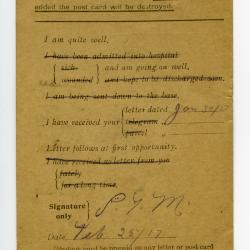 added the post card will be destroyed.
I am quite well.
I have been admitted into hospital
sick and am going on well.
wounded and hope to be discharged soon.
I am being sent down to the base.
letter dated Jan 30/17
I have received your telegram
parcel
Letter follows at first opportunity.
I have received no letter from you
lately
for a long time.
Signature only P. G. M.
Date Feb 25/17